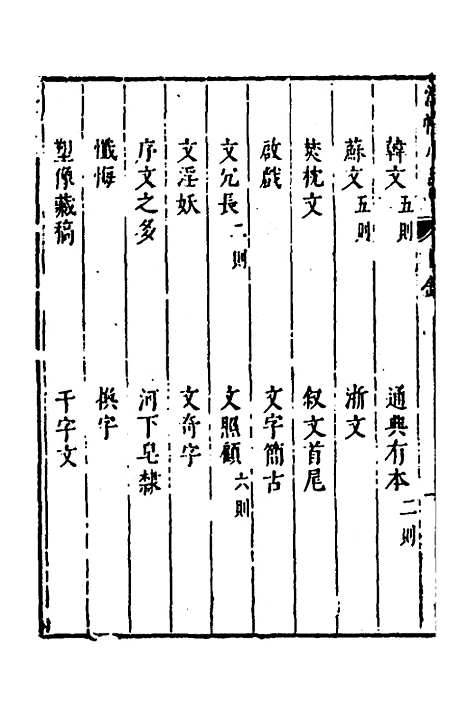 韓文五則　通典有本二則
蘇文五則　浙文
焚枕文　叙文首尾
啟戲　文字簡古
文冗長二則　文照顧六則
文淫妖　文奇字
序文之多　河下皂隸
懺悔　換字
塑像藏稿　千字文